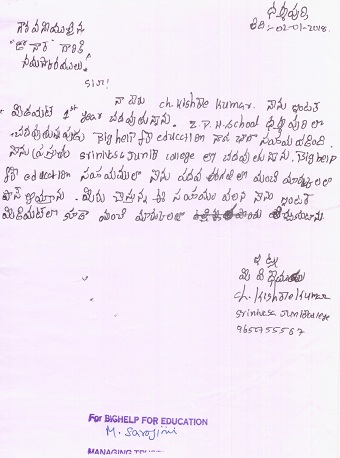 ధర్మపురి
తేది:- 02-01-2018.
గౌరవనీయులైన
"జో సార్" గారికి
నమస్కారములు.
Sir!
నా పేరు ch. Kishore Kumar. నేను ఇంటర్
మీడియట్ 1st year చదువుతున్నాను. Z.P.H.School ధర్మపురి లో
చదువుతున్నప్పుడు Bighelp for education వారి ద్వారా సహాయం పొందితిని.
నేను ప్రస్తుతం srinivasa junior college లో చదువుతున్నాను. Bighelp
for education సహాయముతో నేను పదవ తరగతిలో మంచి మార్కులతో
పాస్ అయ్యాను. మీరు చేస్తున్న ఈ సహాయం వలన నేను ఇంటర్
మీడియట్‌లో కూడా మంచి మార్కులతో
ఇట్లు
మీ విధేయుడు
ch. Kishore Kumar
srinivasa Junior College
9650755567
For BIGHELP FOR EDUCATION
M. Sarojini
MANAGING